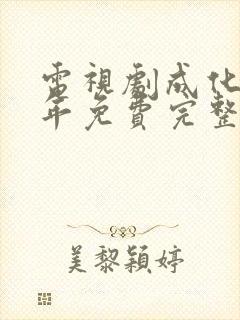 電視劇成化
年免費完整
美黎穎婷